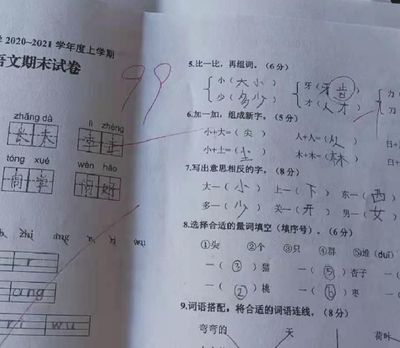 学 2020~2021 学年度上学期
语文期末试卷
99
zhǎng dà
lì zhèng
tóng xué
wèn hǎo
同学
问好
5.比一比,再组词。(6分)
小(大小)
少(多少)
牙(牙齿)
才(人才)
力(
刀(
6.加一加,组成新字。(5分)
小+大=(尖) 人+人=(从) 日+
小+土=(尘) 木+木=(林) 日+
7.写出意思相反的字。(8分)
大—(小) 上—(下) 东—(西
多—(少) 关—(开) 男—(女
8.选择合适的量词填空(填序号)。(6分)
①头 ②个 ③只 ④群 ⑤堆(duī)
一(③)猫 一(⑤)杏子 一(
一(②)桃 一(⑥)枣 一(
9.词语搭配,将合适的词语连线。(8分)
弯弯的 天 荷叶